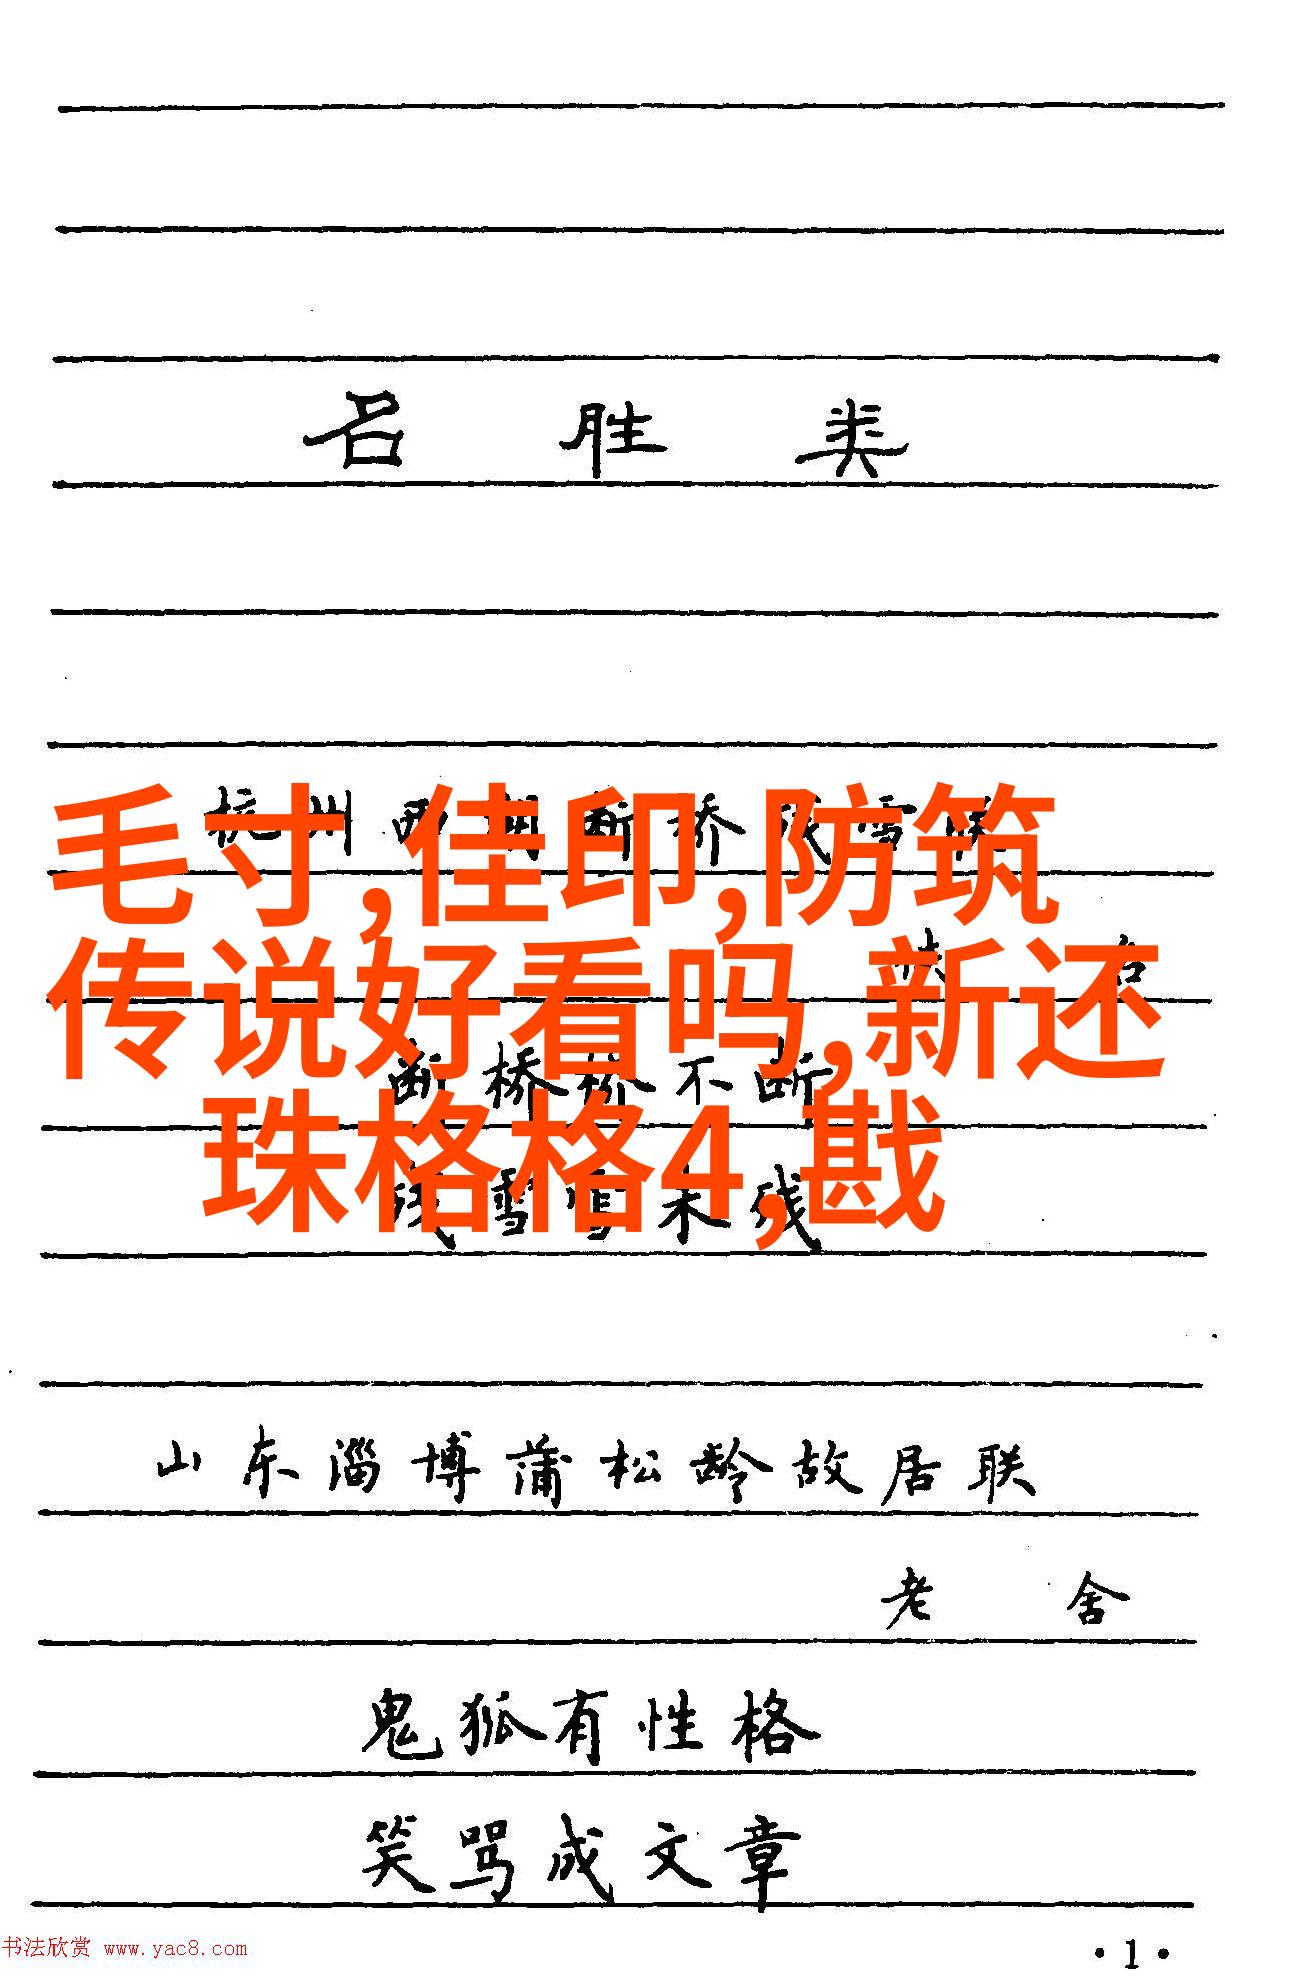 名胜类
杭州西湖断桥残雪联
佚名
断桥桥不断
残雪雪未残
毛寸,佳印,防筑
传说好看吗,新还
珠格格4,戡
山东淄博蒲松龄故居联
老舍
鬼狐有性格
笑骂成文章
书法欣赏 www.yac8.com
·1·